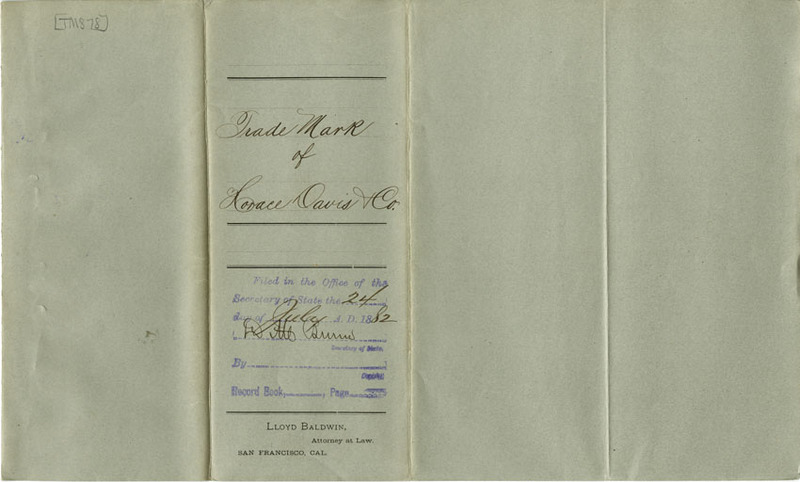 [TM878]
Trade Mark
of
Horace Davis & Co.
Filed in the Office of the
Secretary of State the 24
day of July A. D. 1882
Burns
Secretary of State.
By
Deputy
Record Book, Page
LLOYD BALDWIN,
Attorney at Law.
SAN FRANCISCO, CAL.